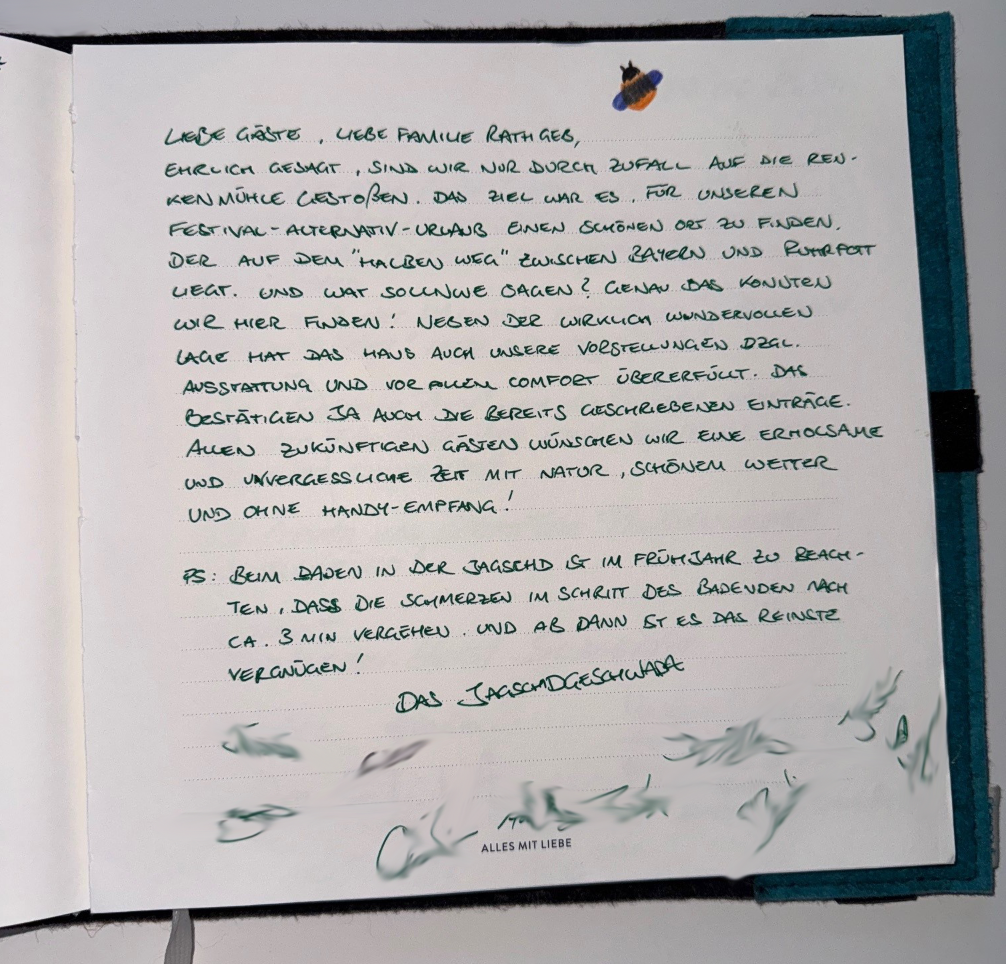 LIEBE GÄSTE, LIEBE FAMILIE RATHGEB,
EHRLICH GESAGT, SIND WIR NUR DURCH ZUFALL AUF DIE REN-
KENMÜHLE GESTOßEN. DAS ZIEL WAR ES, FÜR UNSEREN
FESTIVAL-ALTERNATIV-URLAUB EINEN SCHÖNEN ORT ZU FINDEN,
DER AUF DEM "HALBEN WEG" ZWISCHEN BAYERN UND RUHRPOTT
LIEGT. UND WAT SOLLNWE SAGEN? GENAU DAS KONNTEN
WIR HIER FINDEN! NEBEN DER WIRKLICH WUNDERVOLLEN
LAGE HAT DAS HAUS AUCH UNSERE VORSTELLUNGEN BZGL.
AUSSTATTUNG UND VOR ALLEM COMFORT ÜBERERFÜLLT. DAS
BESTÄTIGEN JA AUCH DIE BEREITS GESCHRIEBENEN EINTRÄGE.
ALLEN ZUKÜNFTIGEN GÄSTEN WÜNSCHEN WIR EINE ERHOLSAME
UND UNVERGESSLICHE ZEIT MIT NATUR, SCHÖNEM WETTER
UND OHNE HANDY-EMPFANG!
PS: BEIM BADEN IN DER JAGSCHD IST IM FRÜHJAHR ZU BEACH-
TEN, DASS DIE SCHMERZEN IM SCHRITT DES BADENDEN NACH
CA. 3 MIN VERGEHEN. UND AB DANN IST ES DAS REINSTE
VERGNÜGEN!
DAS JAGSCHDGESCHWADA
ALLES MIT LIEBE